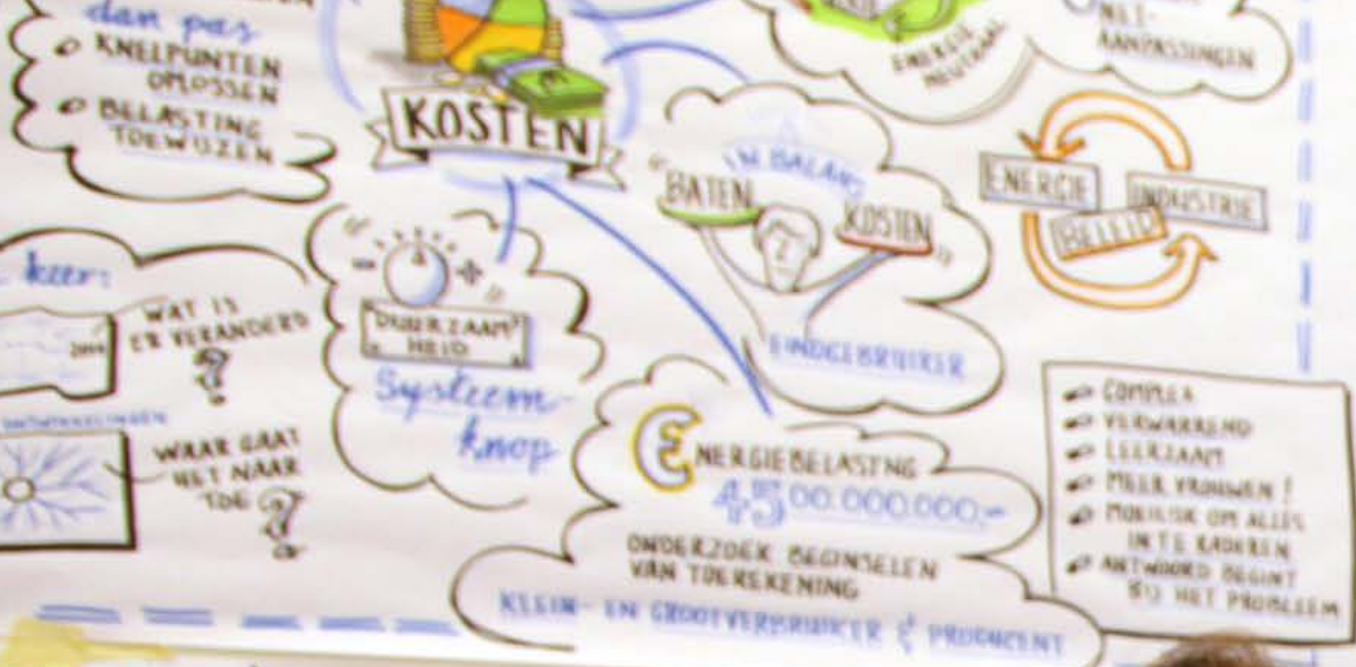 dan pas
KNELPUNTEN
OPLOSSEN
BELASTING
TOEWIJZEN
KOSTEN
ENERGIE
NEUTRAAL
NET-
AANPASSINGEN
IN BALANS
"BATEN
KOSTEN"
EINDGEBRUIKER
ENERGIE
INDUSTRIE
BELEID
keer:
WAT IS
ER VERANDERD
?
ONTWIKKELINGEN
WAAR GAAT
HET NAAR
TOE ?
"
- +
"
DUURZAAM
HEID
Systeem-
knop
ENERGIEBELASTNG
4500.000.000,-
ONDERZOEK BEGINSELEN
VAN TOEREKENING
KLEIN- EN GROOTVERBRUIKER & PRODUCENT
COMPLEX
VERWARREND
LEERZAAM
MEER VROUWEN!
MOEILIJK OM ALLES
IN TE KADEREN
ANTWOORD BEGINT
BIJ HET PROBLEEM